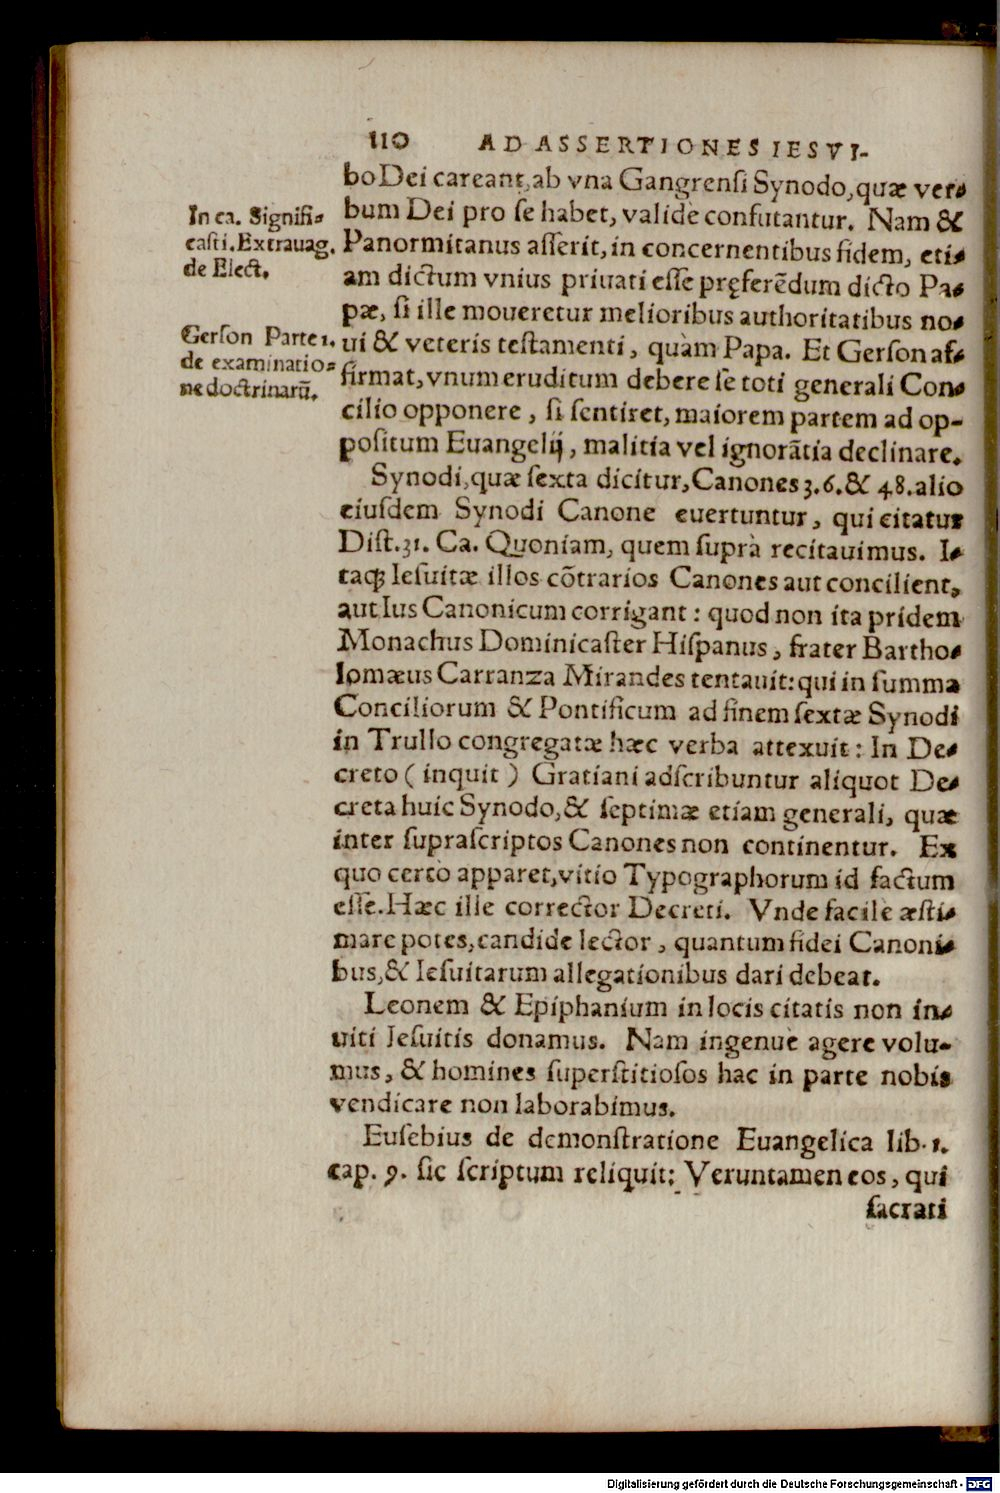 110 AD ASSERTIONES IESVI-
bo Dei careant, ab vna Gangrensi Synodo, quæ ver-
bum Dei pro se habet, validè confutantur. Nam &
Panormitanus asserit, in concernentibus fidem, eti-
am dictum vnius priuati esse pręferẽdum dicto Pa-
pæ, si ille moueretur melioribus authoritatibus no-
ui & veteris testamenti, quàm Papa. Et Gerson af-
firmat, vnum eruditum debere se toti generali Con-
cilio opponere, si sentiret, maiorem partem ad op-
positum Euangelij, malitia vel ignorãtia declinare.
In ca. Signifi-
casti. Extrauag.
de Elect.
Gerson Parte 1.
de examinatio-
ne doctrinarũ.
Synodi, quæ sexta dicitur, Canones 3. 6. & 48. alio
eiusdem Synodi Canone euertuntur, qui citatur
Dist. 31. Ca. Quoniam, quem suprà recitauimus. I-
taqꝫ Iesuitæ illos cõtrarios Canones aut concilient,
aut Ius Canonicum corrigant: quod non ita pridem
Monachus Dominicaster Hispanus, frater Bartho-
lomæus Carranza Mirandes tentauit: qui in summa
Conciliorum & Pontificum ad finem sextæ Synodi
in Trullo congregatæ hæc verba attexuit: In De-
creto (inquit) Gratiani adscribuntur aliquot De-
creta huic Synodo, & septimæ etiam generali, quæ
inter suprascriptos Canones non continentur. Ex
quo certò apparet, vitio Typographorum id factum
esse. Hæc ille corrector Decreti. Vnde facilè æsti-
mare potes, candide lector, quantum fidei Canoni-
bus, & Iesuitarum allegationibus dari debeat.
Leonem & Epiphanium in locis citatis non in-
uiti Iesuitis donamus. Nam ingenuè agere volu-
mus, & homines superstitiosos hac in parte nobis
vendicare non laborabimus.
Eusebius de demonstratione Euangelica lib. 1.
cap. 9. sic scriptum reliquit: Veruntamen eos, qui
sacrati
Digitalisierung gefördert durch die Deutsche Forschungsgemeinschaft - DFG